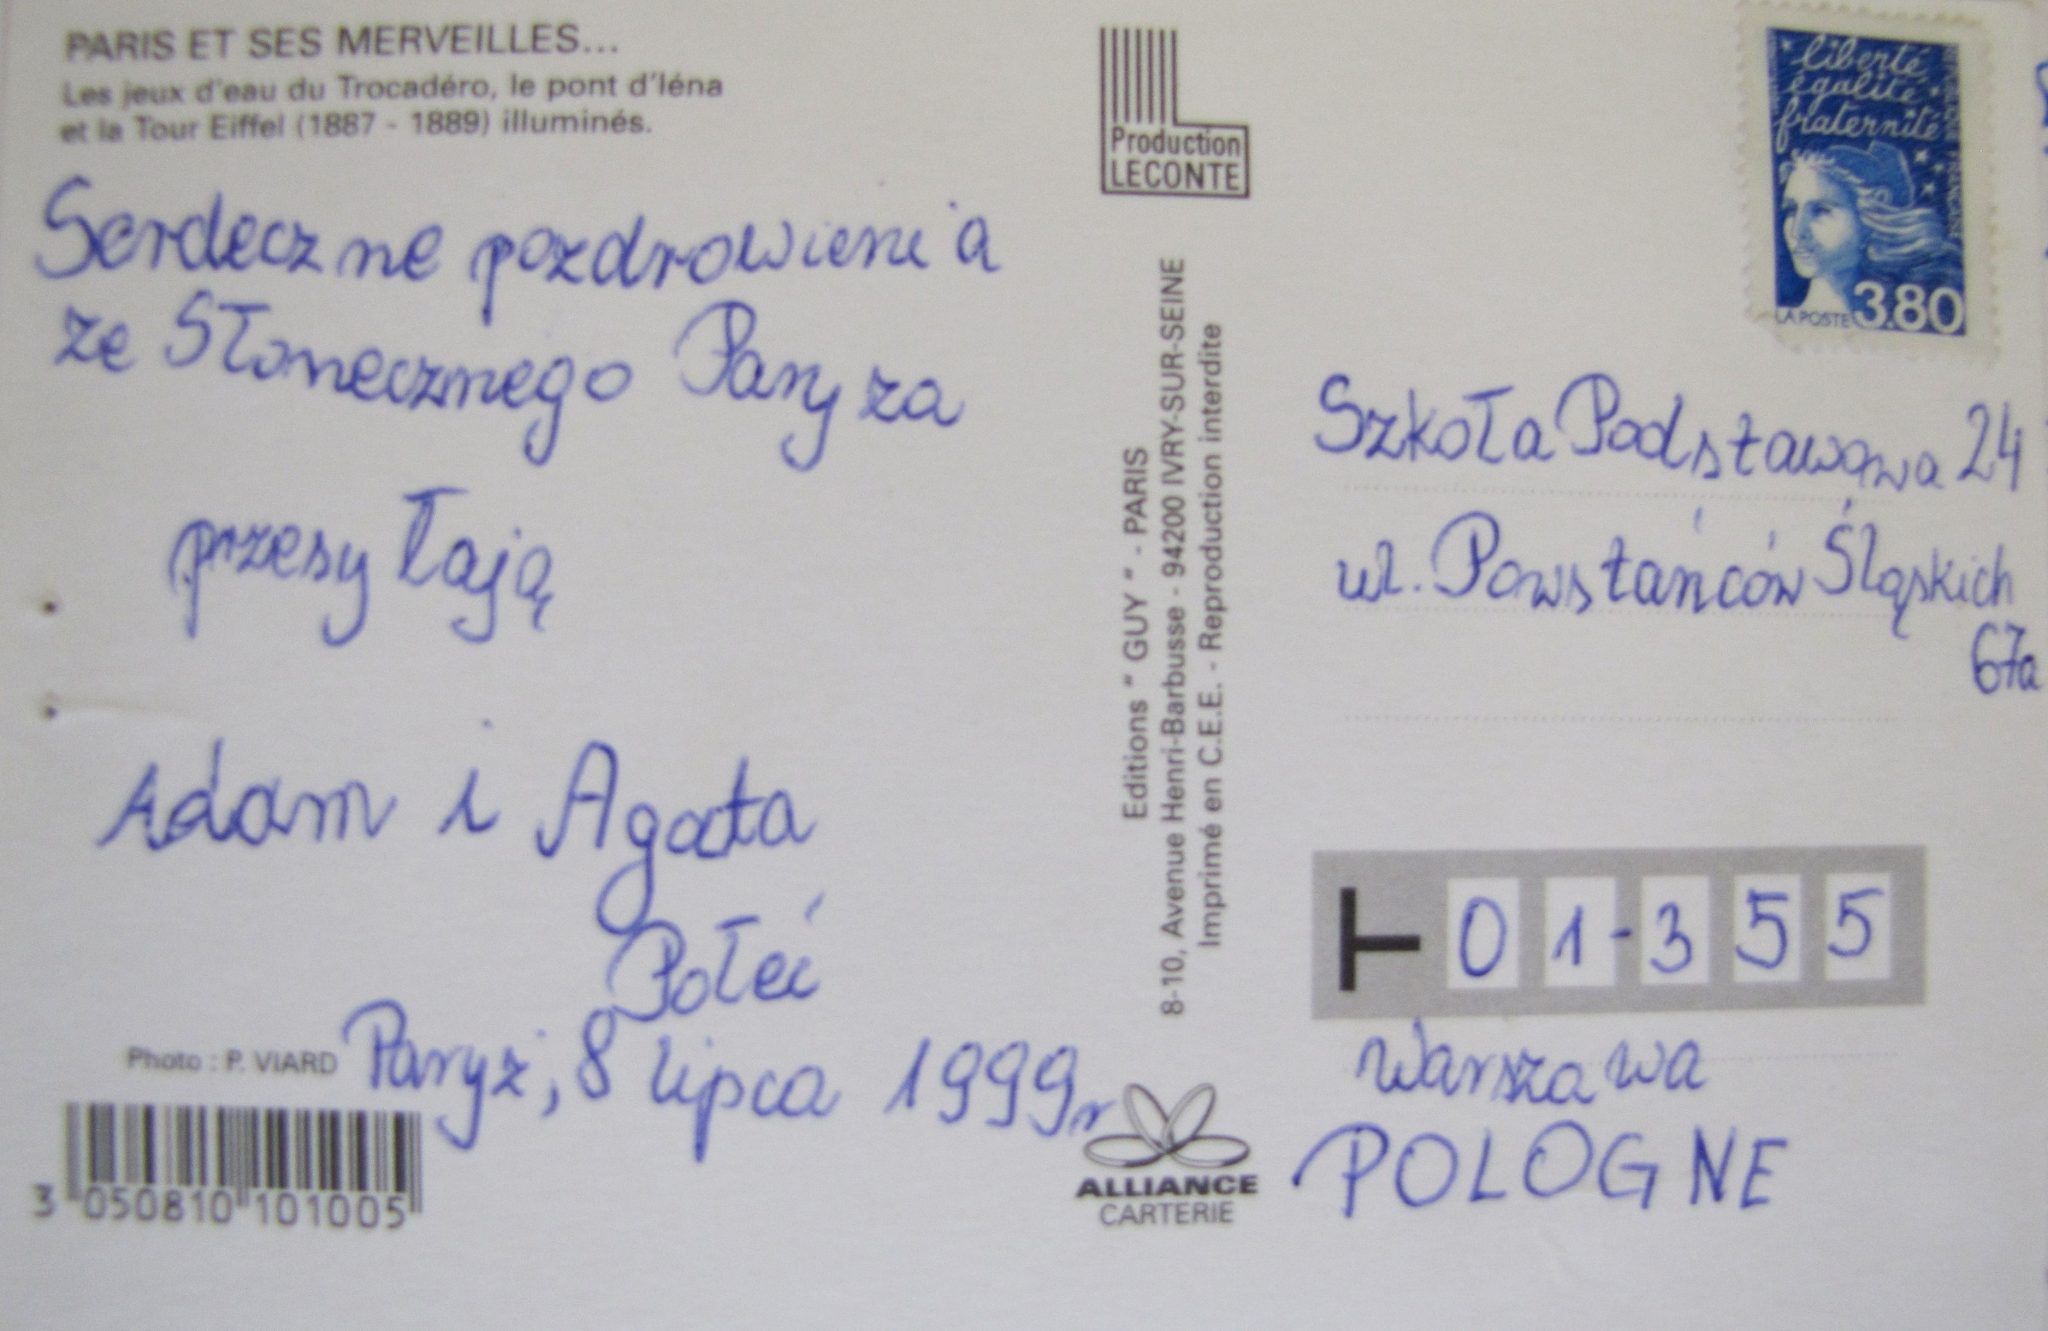 PARIS ET SES MERVEILLES...
Les jeux d'eau du Trocadéro, le pont d'Iéna
et la Tour Eiffel (1887 - 1889) illuminés.
Serdeczne pozdrowienia
ze Słonecznego Paryża
przesyłają
Adam i Agata
Połeć
Paryż, 8 lipca 1999r
Photo : P. VIARD
3 050810 101005
Production
LECONTE
Editions " GUY " - PARIS
8-10, Avenue Henri-Barbusse - 94200 IVRY-SUR-SEINE
Imprimé en C.E.E. - Reproduction interdite
ALLIANCE
CARTERIE
liberté
égalité
fraternité
RÉPUBLIQUE FRANÇAISE
LA POSTE 3.80
Szkoła Podstawowa 24
ul. Powstańców Śląskich
67a
01-355
Warszawa
POLOGNE